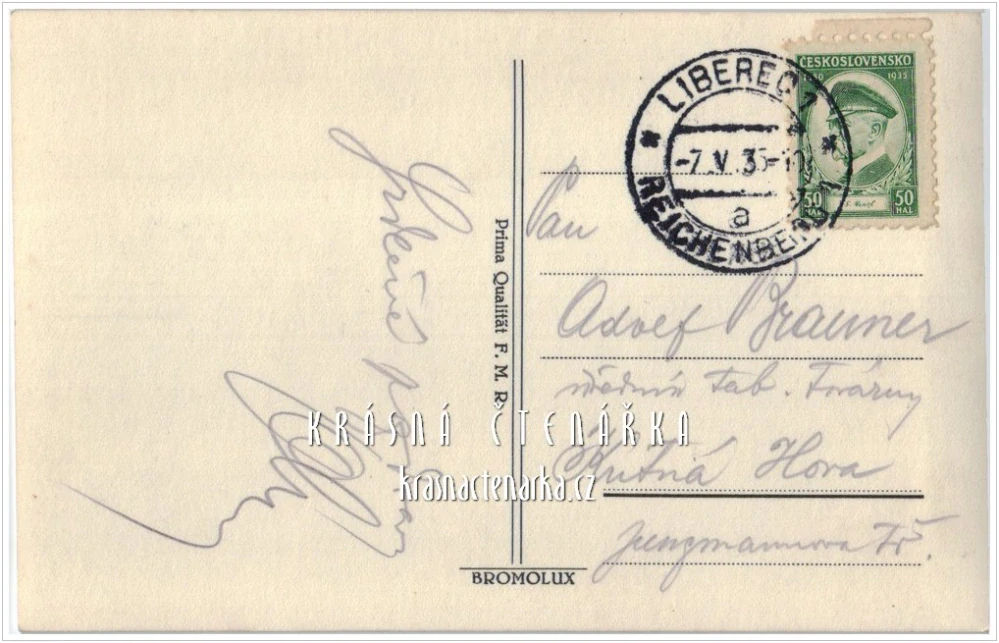 ČESKOSLOVENSKO
1935
50 HAL
50 HAL
LIBEREC 1
-7.V.35-
a
REICHENBERG 1
Pan
Adolf Brauner
úředník tab. továrny
Kutná Hora
Jungmannova tř.
Srdečný pozdrav
Prima Qualität F. M. R.
BROMOLUX
KRÁSNÁ ČTENÁŘKA
krasnactenarka.cz